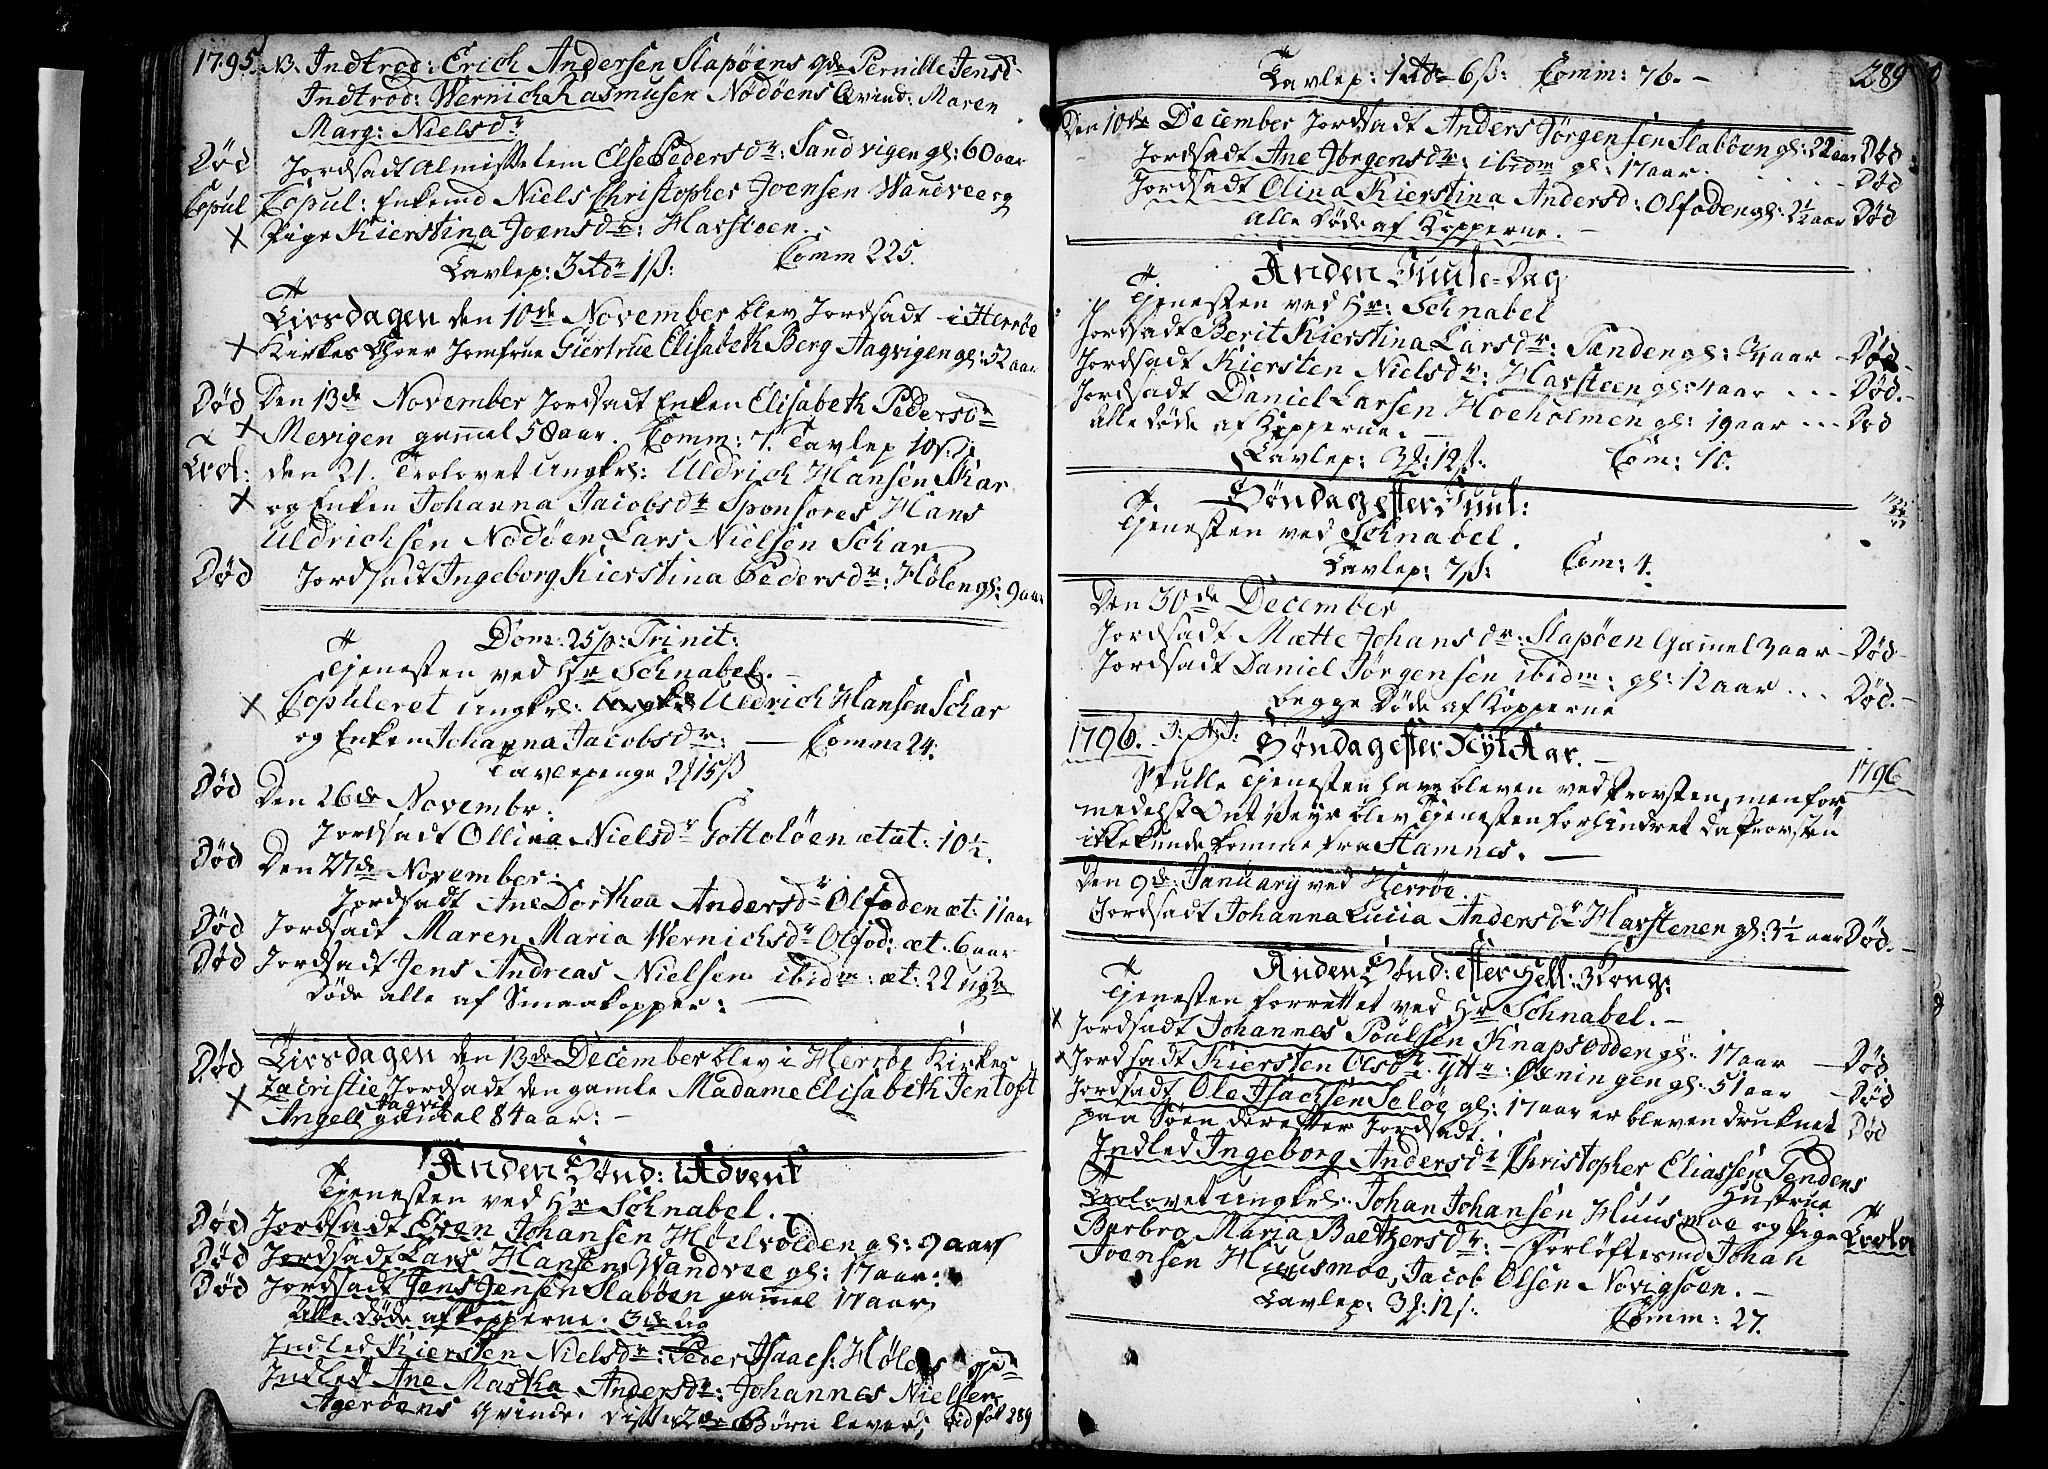 1795. NB. Indtrod: Erich Andersen Slapøens qde Pernille Jensd.
Indtrod: Wernich Rasmusen Nødøens Qvind: Maren
Marg: Nielsdr
Død Jordsadt Almisselem Else Pedersdr: Sandvigen gl: 60 aar
Copul Copul: Enkemd Niels Christopher Joensen Wandveeg
Pige Kierstina Joensdr: Hasteen.
Tavlep: 3 1ß: Comm 225.
Tirsdagen den 10de November blev Jordsadt i Herrøe
Kirkes Choer Jomfrue Giertrue Elisabeth Berg Tagvigen gl: 52 aar
Død Den 13de November Jordsadt Enken Elisabeth Pedersdr
Mevigen gamel 58 aar. Comm: 7. Tavlep 10ß:
Trol: den 21. Trolovet Ungkl: Uldrich Hansen Skar
og Enken Johanna Jacobsdr Sponsores Hans
Uldrichsen Nødøen Lars Nielsen Schar
Død Jordsadt Ingeborg Kierstina Pedersdr: Hølen gl: 9 aar
Dom: 25 p: Trinit:
Tjenesten ved Hr Schnabel.
Copuleret Ungkl: Uldrich Hansen Schar
og Enken Johanna Jacobsdr: Comm 24:
Tavlepenge 2 15ß
Død Den 26de Novembr:
Jordsadt Ollina Nielsdr Gottoløen ætat: 10½.
Død Den 27de November:
Jordsadt Ane Dorthea Andersdr Olfoden æt: 11 aar
Død Jordsadt Maren Maria Wernichsdr Olfod: æt: 6 aar
Død Jordsadt Jens Andreas Nielsen ibidm: æt: 22 ugr
Døde alle af Smaakopper:
Død Tirsdagen den 13de December blev i Herrøe Kirkes
Zacristie Jordsadt den gamle Madame Elisabeth Jentoft
Tagvig
Angell gamel 84 aar:
Anden Sønd: i Advent
Tjenesten ved Hr Schnabel.
Død Jordsadt Even Johansen Høelvolden gl: 9 aar
Død Jordsadt Lars Hansen Wandvee gl: 17 aar:
Død Jordsadt Jens Jensen Slabøen gamel 17 aar
Alle Døde af Kopperne. 3de Lig
Indled Kiersten Nielsdr: Peder Isaacs: Hølens qde
Indled Ane Martha Andersdr: Johannes Nielsen
Agerøens Qvinde. Disse 2de Børn lever, vid fol 289
Tavlep: 1 6ß: Comm: 76. 289
Den 10de December Jordsadt Anders Jørgensen Slabøen gl: 22 aar Død
Jordsadt Ane Jørgensdr: ibidm gl: 17 aar. Død
Jordsadt Olina Kierstina Andersd: Olfoden gl: 2½ aar Død
Alle Døde af Kopperne.
Anden Juule-Dag
Tjenesten ved Hr: Schnabel
Jordsadt Berit Kierstina Larsdr: Sanden gl: ¾ aar Død
Jordsadt Kiersten Nielsdr: Hasteen gl: 4 aar Død.
Jordsadt Daniel Larsen Hoeholmen gl: 19 aar Død
Alle Døde af Kopperne.
Tavlep: 3: 12ß: Com: 10.
Søndag efter Juul:
Tjenesten ved Schnabel.
Tavlep: 7ß: Com: 4.
Den 30de December
Jordsadt Mætte Johansdr: Slapøen Gamel 3 aar Død
Jordsadt Daniel Jørgensen ibidm: gl: 12 aar Død.
begge Døde af Kopperne
1796. Søndag efter Nyt Aar.
Skulle Tjenesten have bleven ved Provsten, men for 1796
medelst Ont Veyr blev Tjenesten forhindret da Provsten
ikke kunde komme fra Stamnes.
Den 9de January ved Herrøe
Jordsadt Johanna Lucia Andersdr Havstenen gl: 3½ aar Død.
Anden Sønd: efter Hell: 3 Kong:
Tjenesten forrettet ved Hr Schnabel.
Jordsadt Johannes Poulsen Knapsødden gl: 17 aar Død
Jordsadt Kiersten Olsdr. Yttr: Øxningen gl: 51 aar Død
Jordsadt Ole Isachsen Soløe gl: 17 aar er bleven druknet Død
paa Søen derefter Jordsadt.
Indled Ingeborg Andersdr Christopher Eliassen Sendens
Hustrue
Trolovet Ungkl: Johan Johansen Huusmoe og Pige Trolo
Barbro Maria Baltzersdr: Forløftesmd Johan
Joensen Huusmoe, Jacob Olsen Novigsøen.
Tavlep: 3: 12ß: Comm: 27.